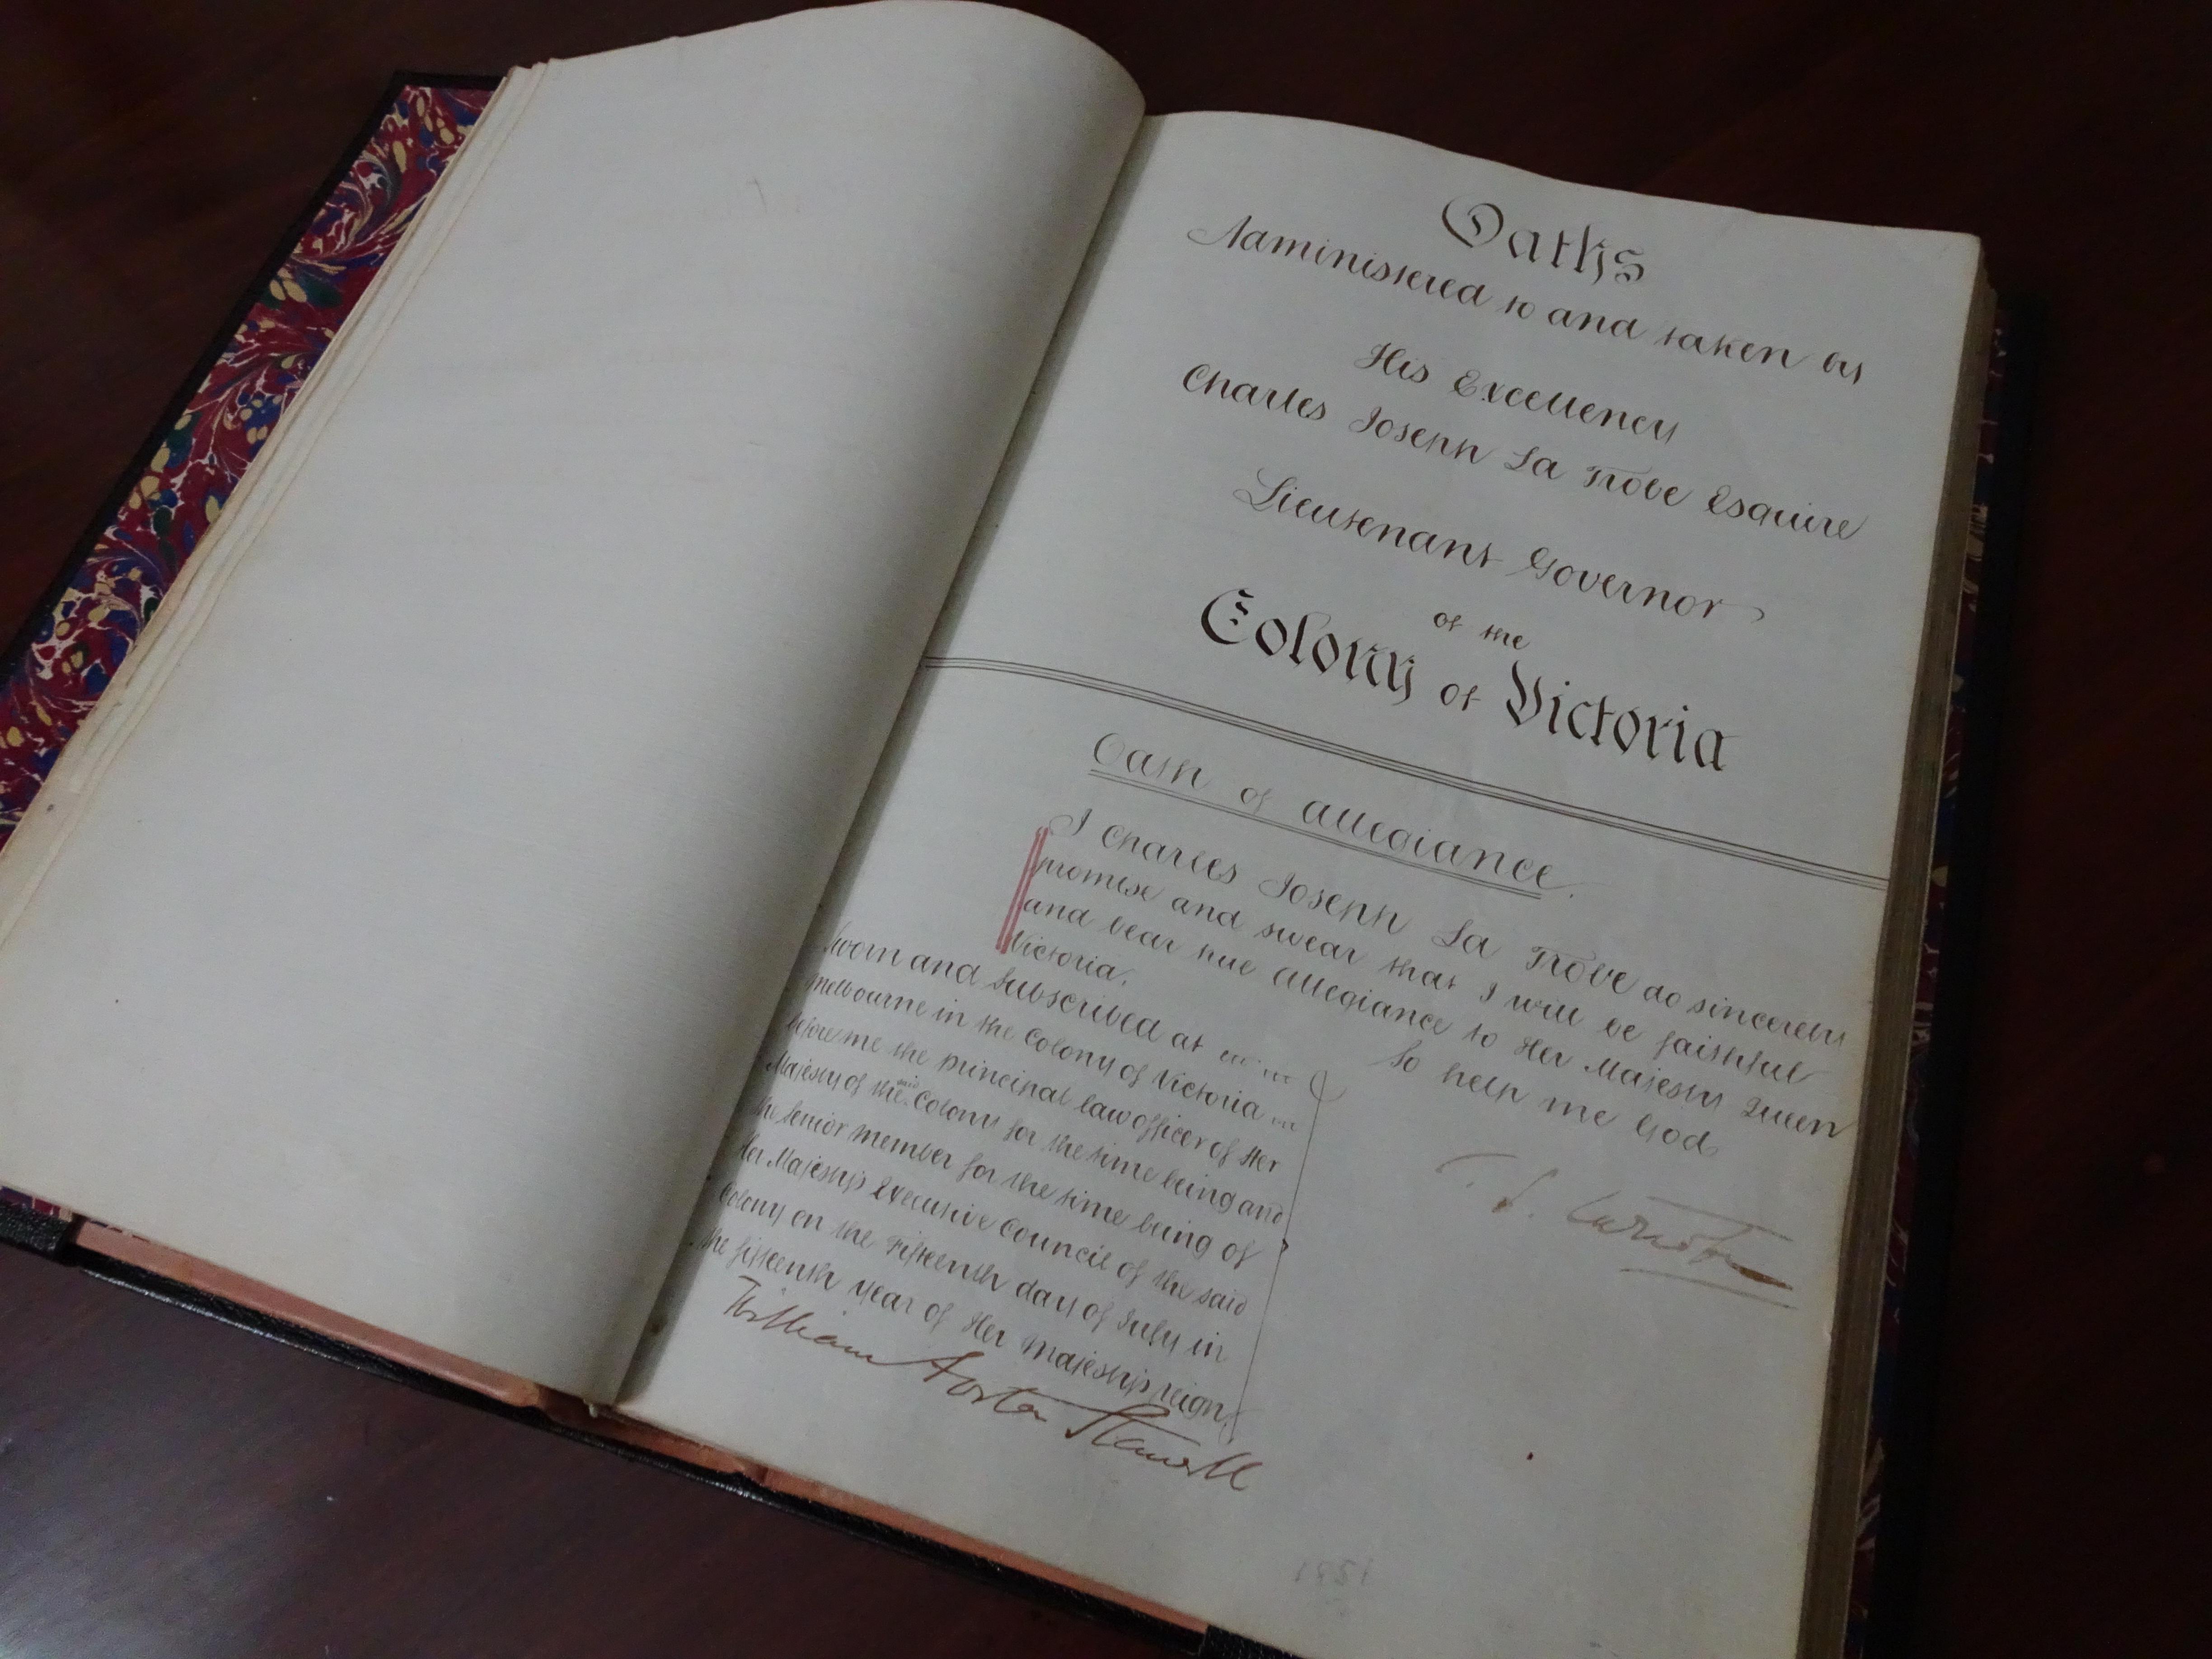 Oaths
Administered to and taken by
His Excellency
Charles Joseph La Trobe Esquire
Lieutenant Governor
of the
Colony of Victoria
Oath of Allegiance.
I Charles Joseph La Trobe do sincerely
promise and swear that I will be faithful
and bear true allegiance to Her Majesty Queen
Victoria.
So help me God
Sworn and Subscribed at
Melbourne in the Colony of Victoria
before me the principal law officer of Her
Majesty of the said Colony for the time being and
the Senior member for the time being of
Her Majesty's Executive Council of the said
Colony on the Fifteenth day of July in
the fifteenth year of Her Majesty's reign.
William Foster Stawell
1851